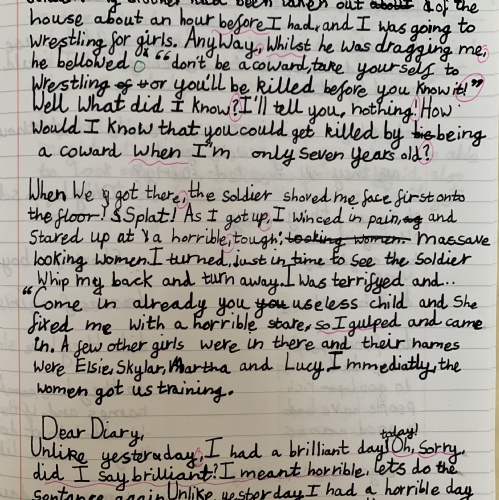 my brother had been taken out about of the
house about an hour before I had, and I was going to
wrestling for girls. AnyWay, Whilst he was dragging me,
he bellowed “don't be a coward, take yourself to
Wrestling or or you'll be killed before you know it!”
Well What did I know? I'll tell you, nothing! How
Would I know that you could get killed by being
a coward when I'm only seven years old?
When We got there, the soldier shoved me face first onto
the floor! Splat! As I got up, I winced in pain, ag and
Stared up at a horrible, tough, looking women. massave
looking women. I turned, just in time to see the soldier
Whip my back and turn away. I was terrifyed and..
“Come in already you you useless child and She
fixed me with a horrible stare, so I gulped and came
in. A few other girls were in there and their names
were Elsie, Skylar, Martha and Lucy. Immediatly, the
women got us training.
Dear Diary,
Unlike yesterday, I had a brilliant day today! Oh, Sorry,
did I say brilliant? I meant horrible, lets do the
sentence again. Unlike, yesterday I had a horrible day